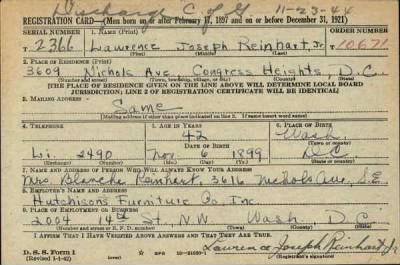 Discharge C of G 11-23-44
REGISTRATION CARD—(Men born on or after February 17, 1897 and on or before December 31, 1921)
SERIAL NUMBER 1. NAME (Print) ORDER NUMBER
T 2366 Lawrence Joseph Reinhart, Jr. 10671
(First) (Middle) (Last)
2. PLACE OF RESIDENCE (Print)
3609 Nichols Ave Congress Heights, D.C.
(Number and street) (Town, township, village, or city) (County) (State)
[THE PLACE OF RESIDENCE GIVEN ON THE LINE ABOVE WILL DETERMINE LOCAL BOARD
JURISDICTION; LINE 2 OF REGISTRATION CERTIFICATE WILL BE IDENTICAL]
3. MAILING ADDRESS
Same
(Mailing address if other than place indicated on line 2. If same insert word same)
4. TELEPHONE 5. AGE IN YEARS 6. PLACE OF BIRTH
42 Wash
DATE OF BIRTH (Town or county)
Li. 2490 Nov 6 1899 D.C.
(Exchange) (Number) (Mo.) (Day) (Yr.) (State or country)
7. NAME AND ADDRESS OF PERSON WHO WILL ALWAYS KNOW YOUR ADDRESS
Mrs Blanche Reinhart, 3616 Nichols Ave, S.E.
8. EMPLOYER'S NAME AND ADDRESS
Hutchisons Furniture Co, Inc.
9. PLACE OF EMPLOYMENT OR BUSINESS
2004 14th St, N.W. Wash D.C.
(Number and street or R. F. D. number) (Town) (County) (State)
I AFFIRM THAT I HAVE VERIFIED ABOVE ANSWERS AND THAT THEY ARE TRUE.
D. S. S. Form 1
(Revised 1-1-42) Lawrence Joseph Reinhart Jr